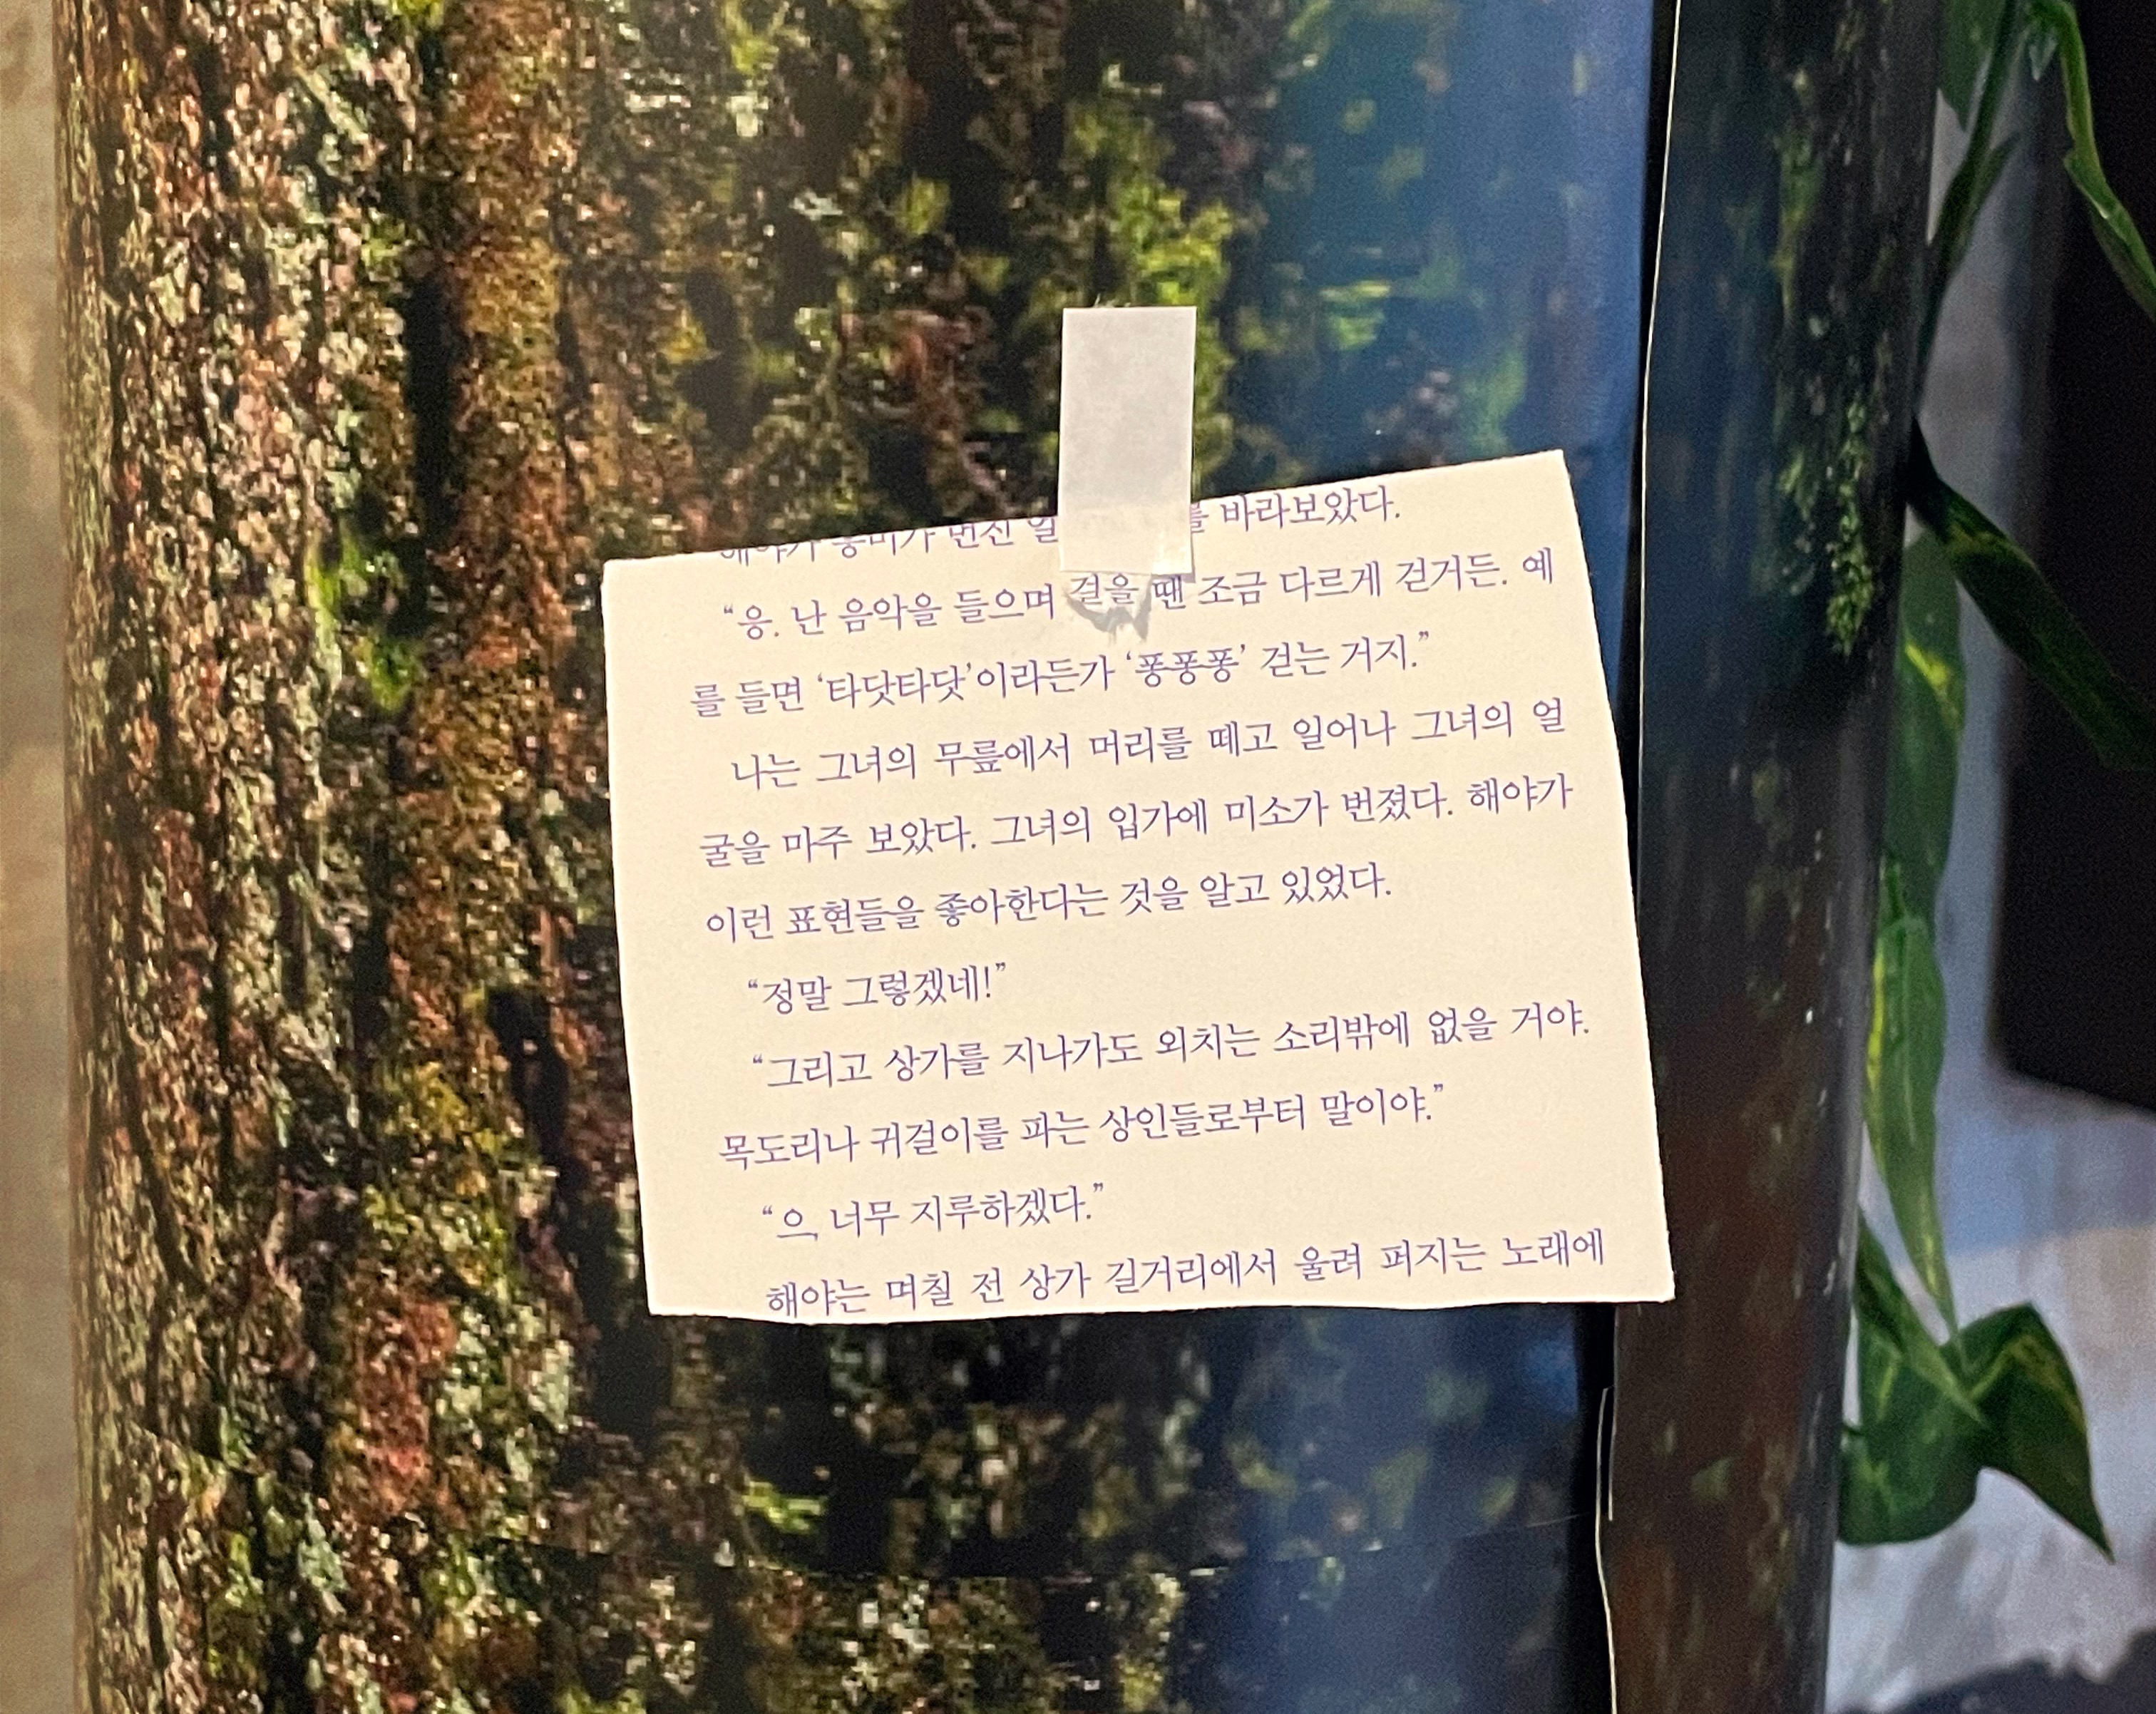 해야가 흥미가 번진 얼 를 바라보았다.
“응. 난 음악을 들으며 걸을 땐 조금 다르게 걷거든. 예
를 들면 ‘타닷타닷’이라든가 ‘퐁퐁퐁’ 걷는 거지.”
나는 그녀의 무릎에서 머리를 떼고 일어나 그녀의 얼
굴을 마주 보았다. 그녀의 입가에 미소가 번졌다. 해야가
이런 표현들을 좋아한다는 것을 알고 있었다.
“정말 그렇겠네!”
“그리고 상가를 지나가도 외치는 소리밖에 없을 거야.
목도리나 귀걸이를 파는 상인들로부터 말이야.”
“으, 너무 지루하겠다.”
해야는 며칠 전 상가 길거리에서 울려 퍼지는 노래에